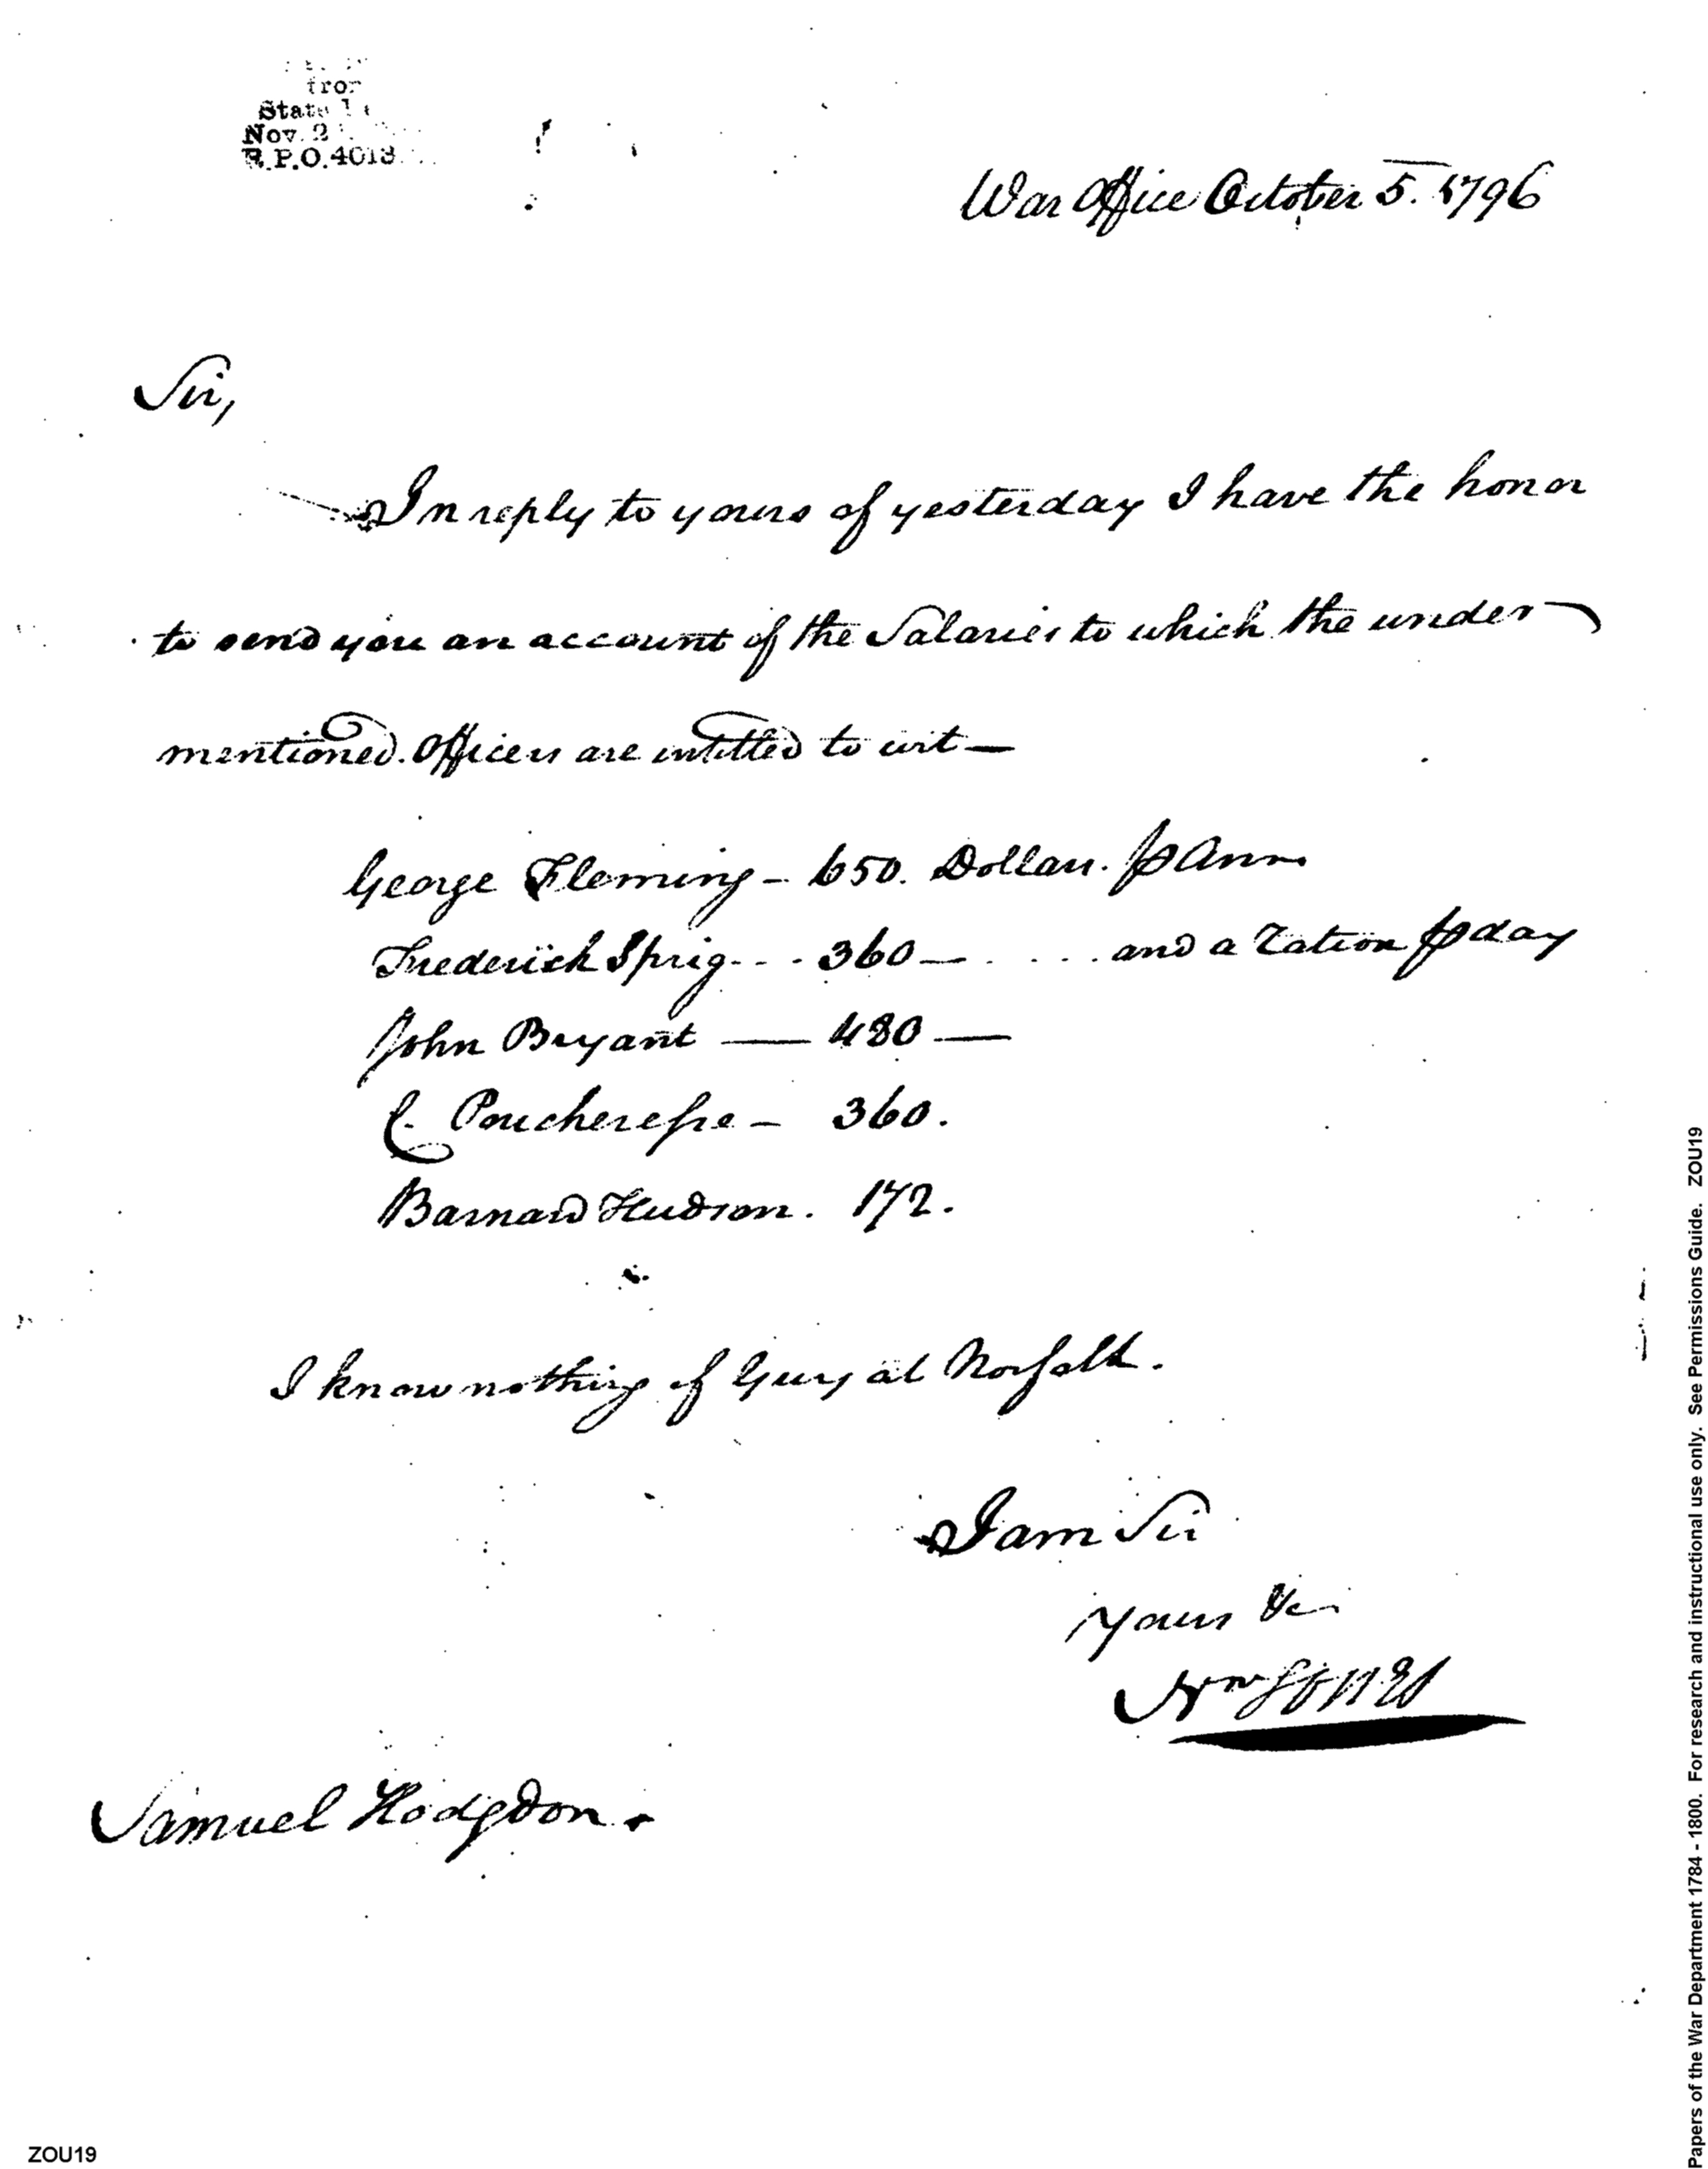 from
State
Nov. 2
R.P.O. 4013
War Office October 5. 1796
Sir,
In reply to yours of yesterday I have the honor
to send you an account of the Salaries to which the under
mentioned Officers are intitled to wit—
George Fleming - 650. Dollars. ⅌ Ann
Frederick Sprig - - - 360 — . . . . and a ration ⅌ day
John Bryant — 480 —
C. Poucheresse - 360.
Barnard Hudson. 172.
I know nothing of Guy at Norfolk.
I am Sir
Yours &c
Samuel Hodgdon.
ZOU19
Papers of the War Department 1784 - 1800. For research and instructional use only. See Permissions Guide. ZOU19